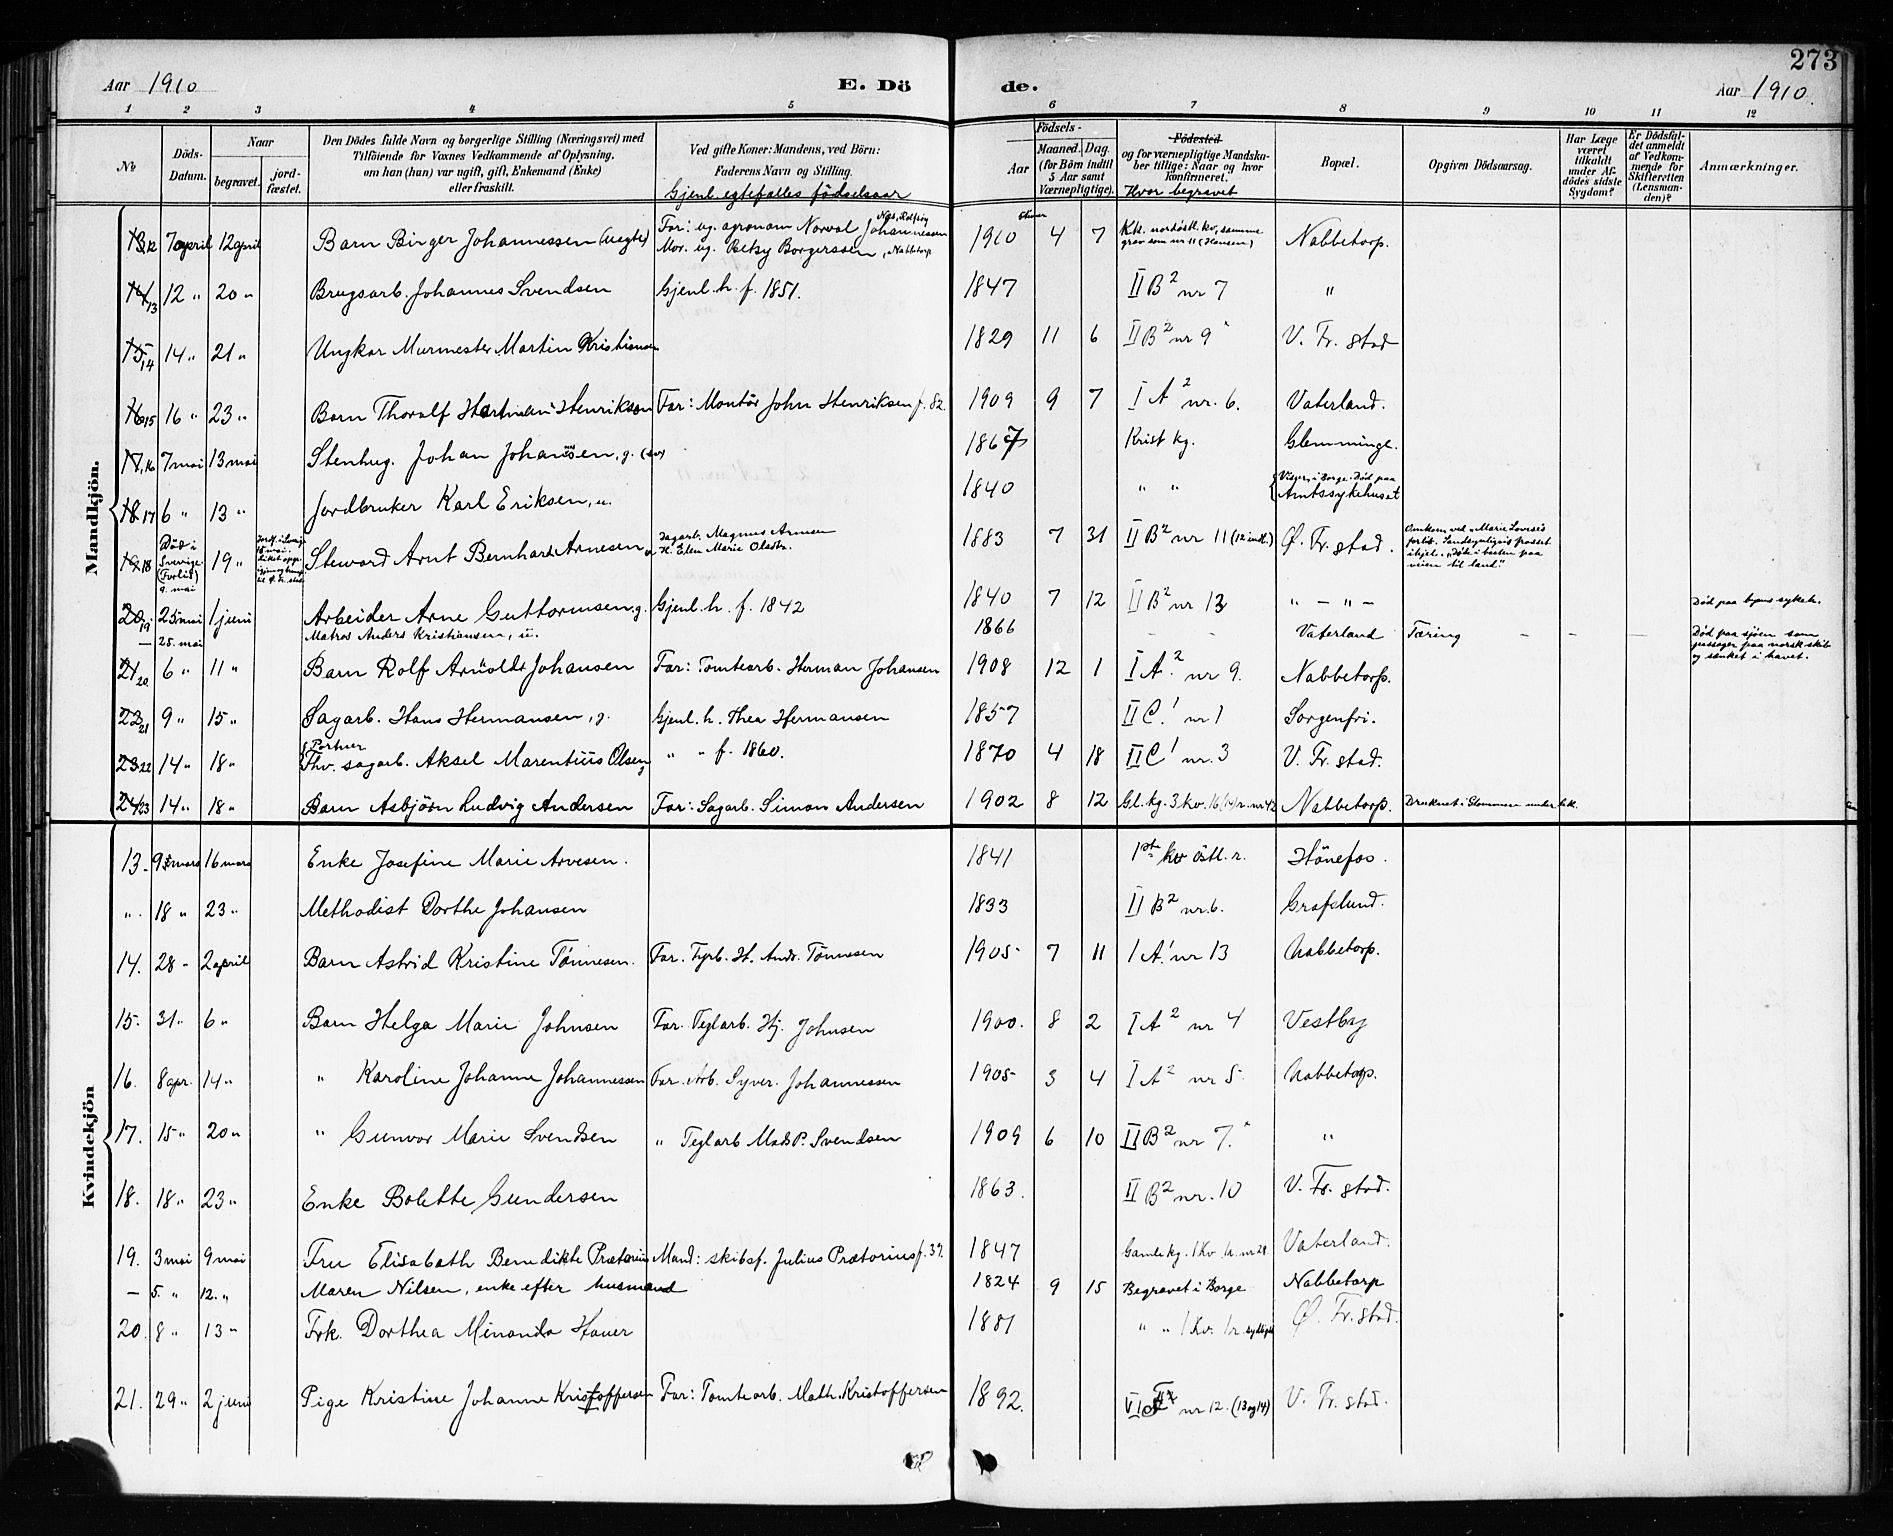 273
Aar 1910 E. Dö de. Aar 1910.
1 2 3 4 5 6 7 8 9 10 11 12
No
Döds-Datum.
Naar
begravet.
jord-fæstet.
Den Dödes fulde Navn og borgerlige Stilling (Næringsvei) med
Tilföiende for Voxnes Vedkommende af Oplysning,
om han (hun) var ugift, gift, Enkemand (Enke)
eller fraskilt.
Ved gifte Koner: Mandens, ved Börn:
Faderens Navn og Stilling.
Gjenl. egtefælles födselsaar
Födsels-
Aar
Maaned. Dag.
(for Börn indtil
5 Aar samt
Værnepligtige).
Födested
og for værnepligtige Mandska-
ber tillige: Naar og hvor
konfirmeret.
Hvor begravet
Bopæl.
Opgiven Dödsaarsag.
Har Læge
været
tilkaldt
under Af-
dödes sidste
Sygdom?
Er Dödsfal-
det anmeldt
af Vedkom-
mende for
Skifteretten
(Lensman-
den)?
Anmærkninger.
Mandkjön.
12 7 april 12 april Barn Birger Johannessen (uegte) Far: ug. agronom Norval Johannessen 1910 4 7 Kk. nordöstl. kv, samme Nabbetorp.
Mor. ug. Betsy Borgerssen, Nabbetorp grav som nr 11 (Hansen)
14 13 12 " 20 " Brugsarb. Johannes Svendsen Gjenl. h. f. 1851. 1847 II B2 nr 7 "
15 14 14 " 21 " Ungkar Murmester Martin Kristiansen 1829 11 6 II B2 nr 9 V. Fr. stad
16 15 16 " 23 " Barn Thoralf Hartman Henriksen Far: Montör John Henriksen f. 82. 1909 9 7 I A2 nr. 6. Vaterland.
17 16 7 mai 13 mai Stenhug. Johan Johansen, g. 1867 Krist kg. Glemminge.
18 17 6 " 13 " Jordbruker Karl Eriksen, u. 1840 " " i Borge. Död paa
Amtssykehuset
19 18 Död i Sverige (Forlis) 9. mai 19 " Steward Arnt Bernhard Arnesen Sagarb. Magnus Arnesen 1883 7 31 II B2 nr 11 Ø. Fr. stad. Omkom ved "Marie Lovise's
H. Elen Marie Olsdtr. forlis. Sandsynligvis frosset
ihjel. "Döde i baaten paa
veien til land."
20 19 25 mai 1 juni Arbeider Arne Guttormsen, g. Gjenl. h. f. 1842 1840 7 12 II B2 nr 13 " — " — Död paa byens sykeh.
— 25. mai Matros Anders Kristiansen, u. 1866 — — Vaterland Tæring — — — Död paa sjöen som
passager paa norsk skib
og sænket i havet.
21 20 6 " 11 " Barn Rolf Arnoldt Johansen Far: Tomtearb. Herman Johansen 1908 12 1 I A2. nr 9. Nabbetorp.
22 21 9 " 15 " Sagarb. Hans Hermansen, g. Gjenl. h. Thea Hermansen 1857 II C.1 nr 1 Sorgenfri.
Portner
23 22 14 " 18 " Fhv. sagarb. Aksel Marentius Olsen " " f. 1860. 1870 4 18 II C1 nr. 3 V. Fr. stad.
24 23 14 " 18 " Barn Asbjörn Ludvig Andersen Far: Sagarb. Simon Andersen 1902 8 12 Gl. kg. 3 kv. 16 (14) r. nr 42 Nabbetorp. Druknet i Glommen under lek.
Kvindekjön
13. 9 mars 16 mars Enke Josefine Marie Arvesen. 1841 1ste kv östl. r. Hönefos.
". 18 " 23 " Methodist Dorthe Johansen 1833 II B2 nr. 6. Grafslund.
14. 28 " 2 april Barn Astrid Kristine Tönnesen. Far. Fyrb. H. Andr. Tönnesen 1905 7 11 I A.1 nr 13 Nabbetorp.
15. 31 " 6 " Barn Helga Marie Johnsen Far. Teglarb. Hj. Johnsen 1900. 8 2 I A2 nr 4 Vestby
16. 8 apr. 14 " " Karoline Johanne Johannessen Far. Arb. Syver. Johannessen 1905 3 4 I A2 nr 5 Nabbetorp.
17. 15 " 20 " " Gunvor Marie Svendsen " Teglarb Mads P. Svendsen 1909 6 10 II B2 nr 7. "
18. 18 " 23 " Enke Bolette Gundersen 1863. II B2 nr. 10 V. Fr. stad.
19. 3 mai 9 mai Fru Elisabeth Benedikte Prætorius Mand: skibsf. Julius Prætorius f. 39. 1847 Gamle kg. 1 Kv. 1r. nr 29. Vaterland.
— 5. " 12. " Maren Nilsen, enke efter husmand 1824 9 15 Begravet i Borge Nabbetorp
20. 8 " 13 " Frk. Dorthea Minanda Hauer 1881 " " 1 Kv. 1r. Ø. Fr. stad.
21. 29 " 2 juni Pige Kristine Johanne Kristoffersen Far: Tomtearb. Math. Kristoffersen 1892. nr 12. (13 og 14) V. Fr. stad.